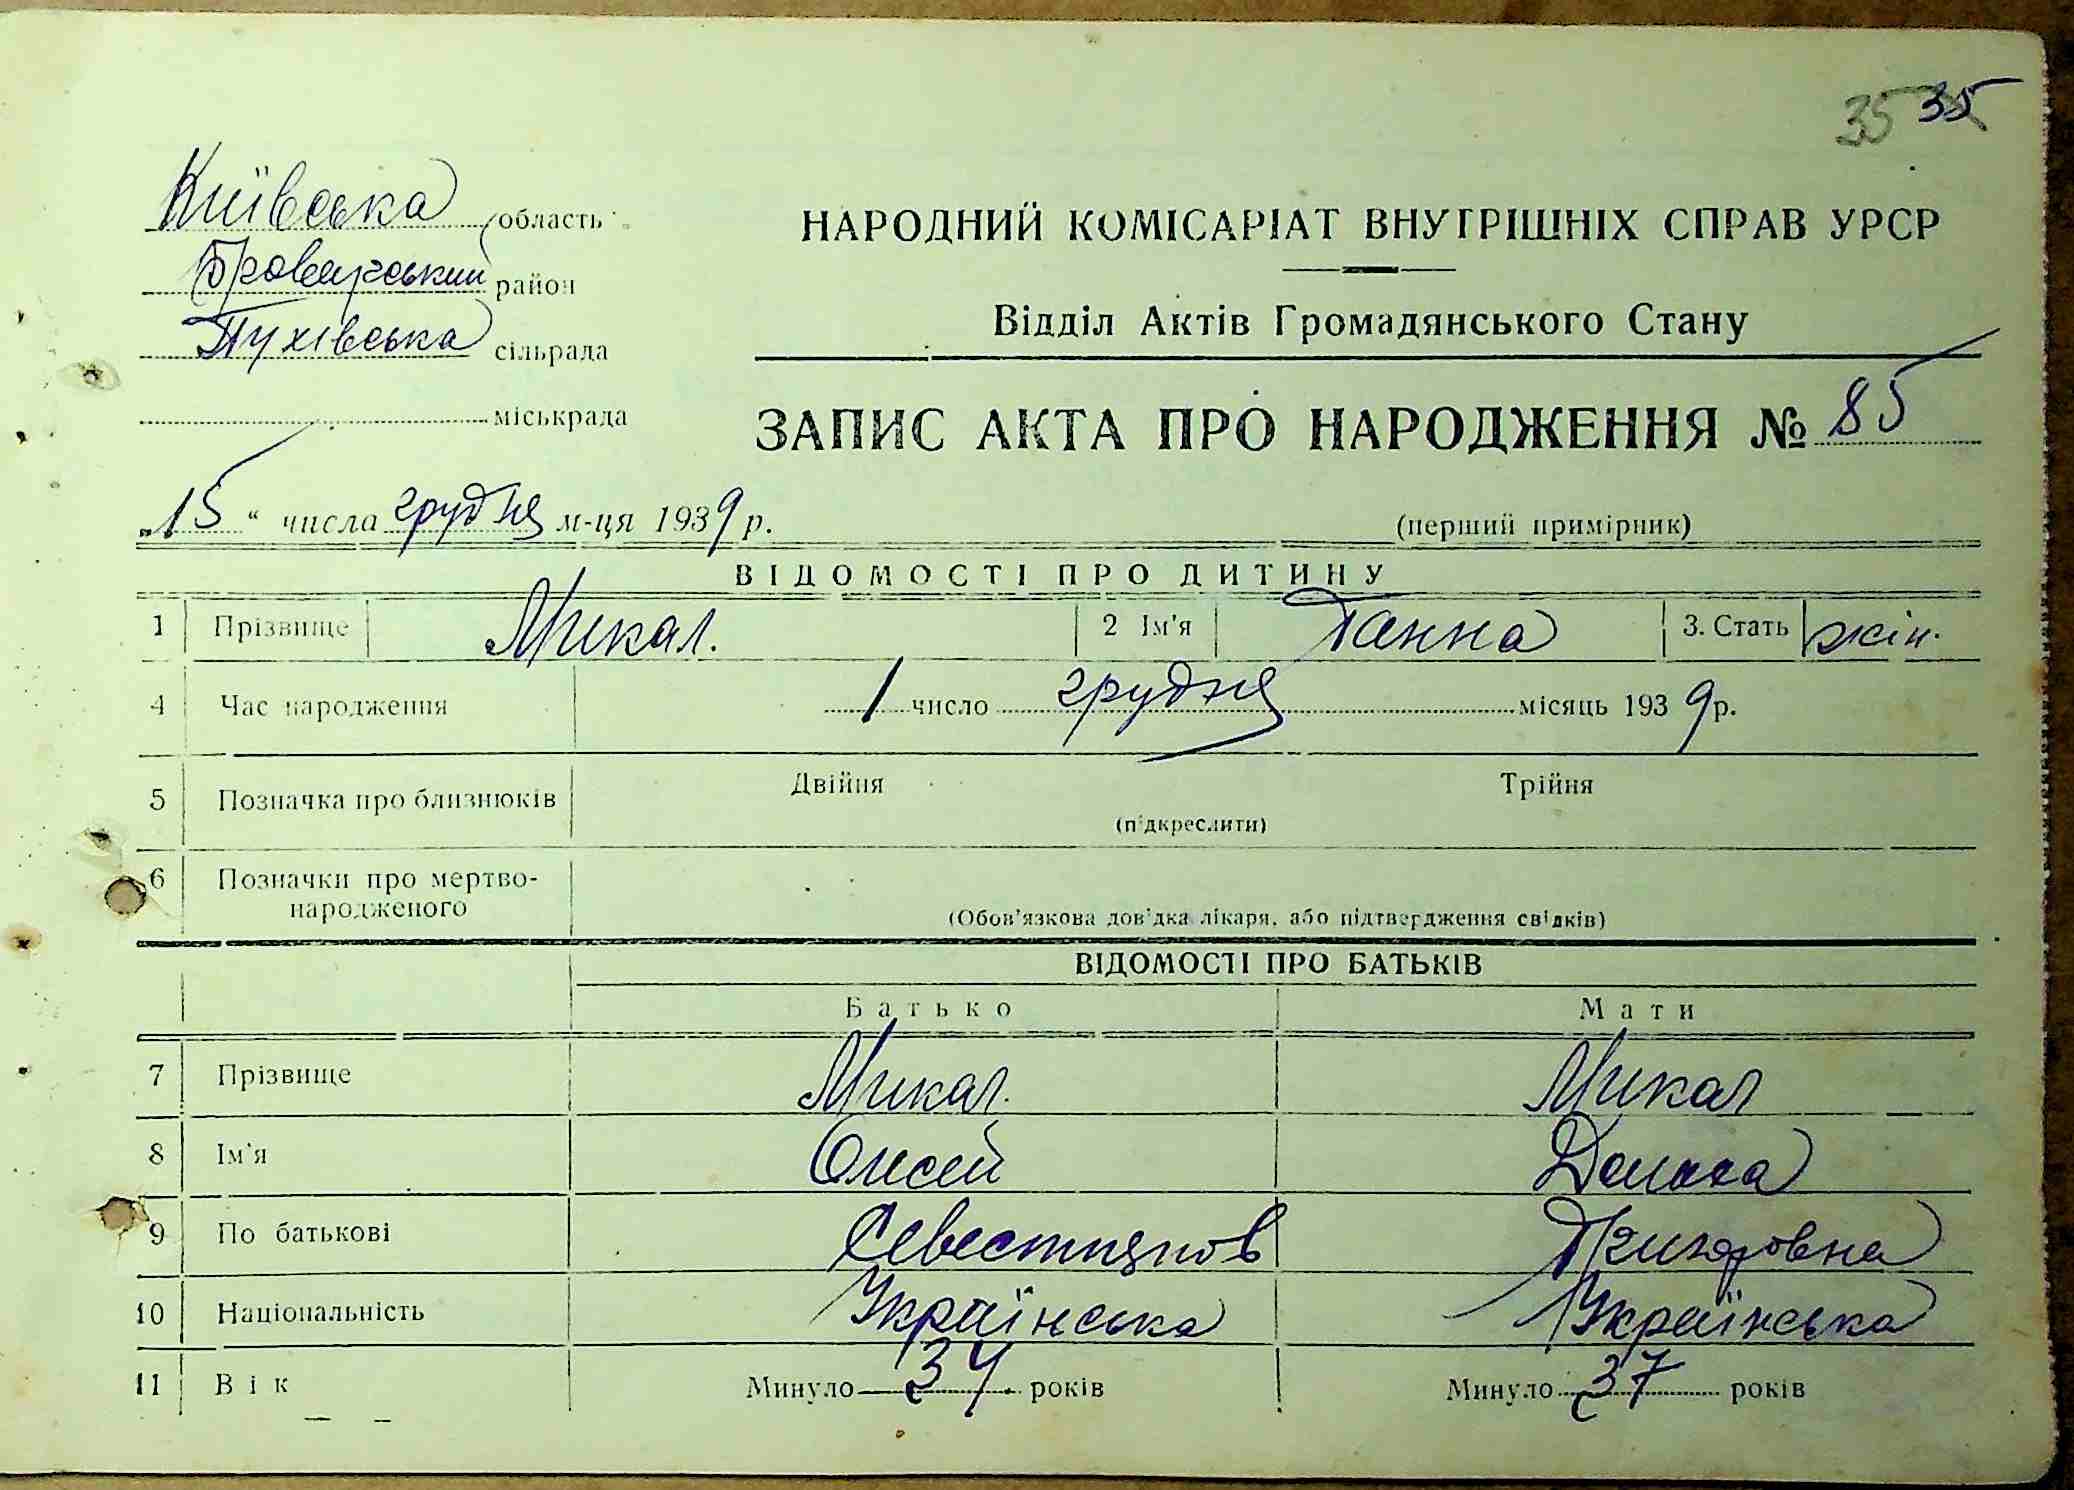 35 35
Київська область
Броварський район
Пухівська сільрада
міськрада
НАРОДНИЙ КОМІСАРІАТ ВНУТРІШНІХ СПРАВ УРСР
Відділ Актів Громадянського Стану
ЗАПИС АКТА ПРО НАРОДЖЕННЯ № 85
„15“ числа грудня м-ця 1939 р.
(перший примірник)
ВІДОМОСТІ ПРО ДИТИНУ
1 Прізвище Микал. 2 Ім'я Ганна 3. Стать жін.
4 Час народження 1 число грудня місяць 1939 р.
5 Позначка про близнюків Двійня Трійня
(підкреслити)
6 Позначки про мертво-
народженого
(Обов'язкова довідка лікаря, або підтвердження свідків)
ВІДОМОСТІ ПРО БАТЬКІВ
Батько Мати
7 Прізвище Микал. Микал
8 Ім'я
9 По батькові Григоровна
10 Національність Українська Українська
11 Вік Минуло 34 років Минуло 37 років